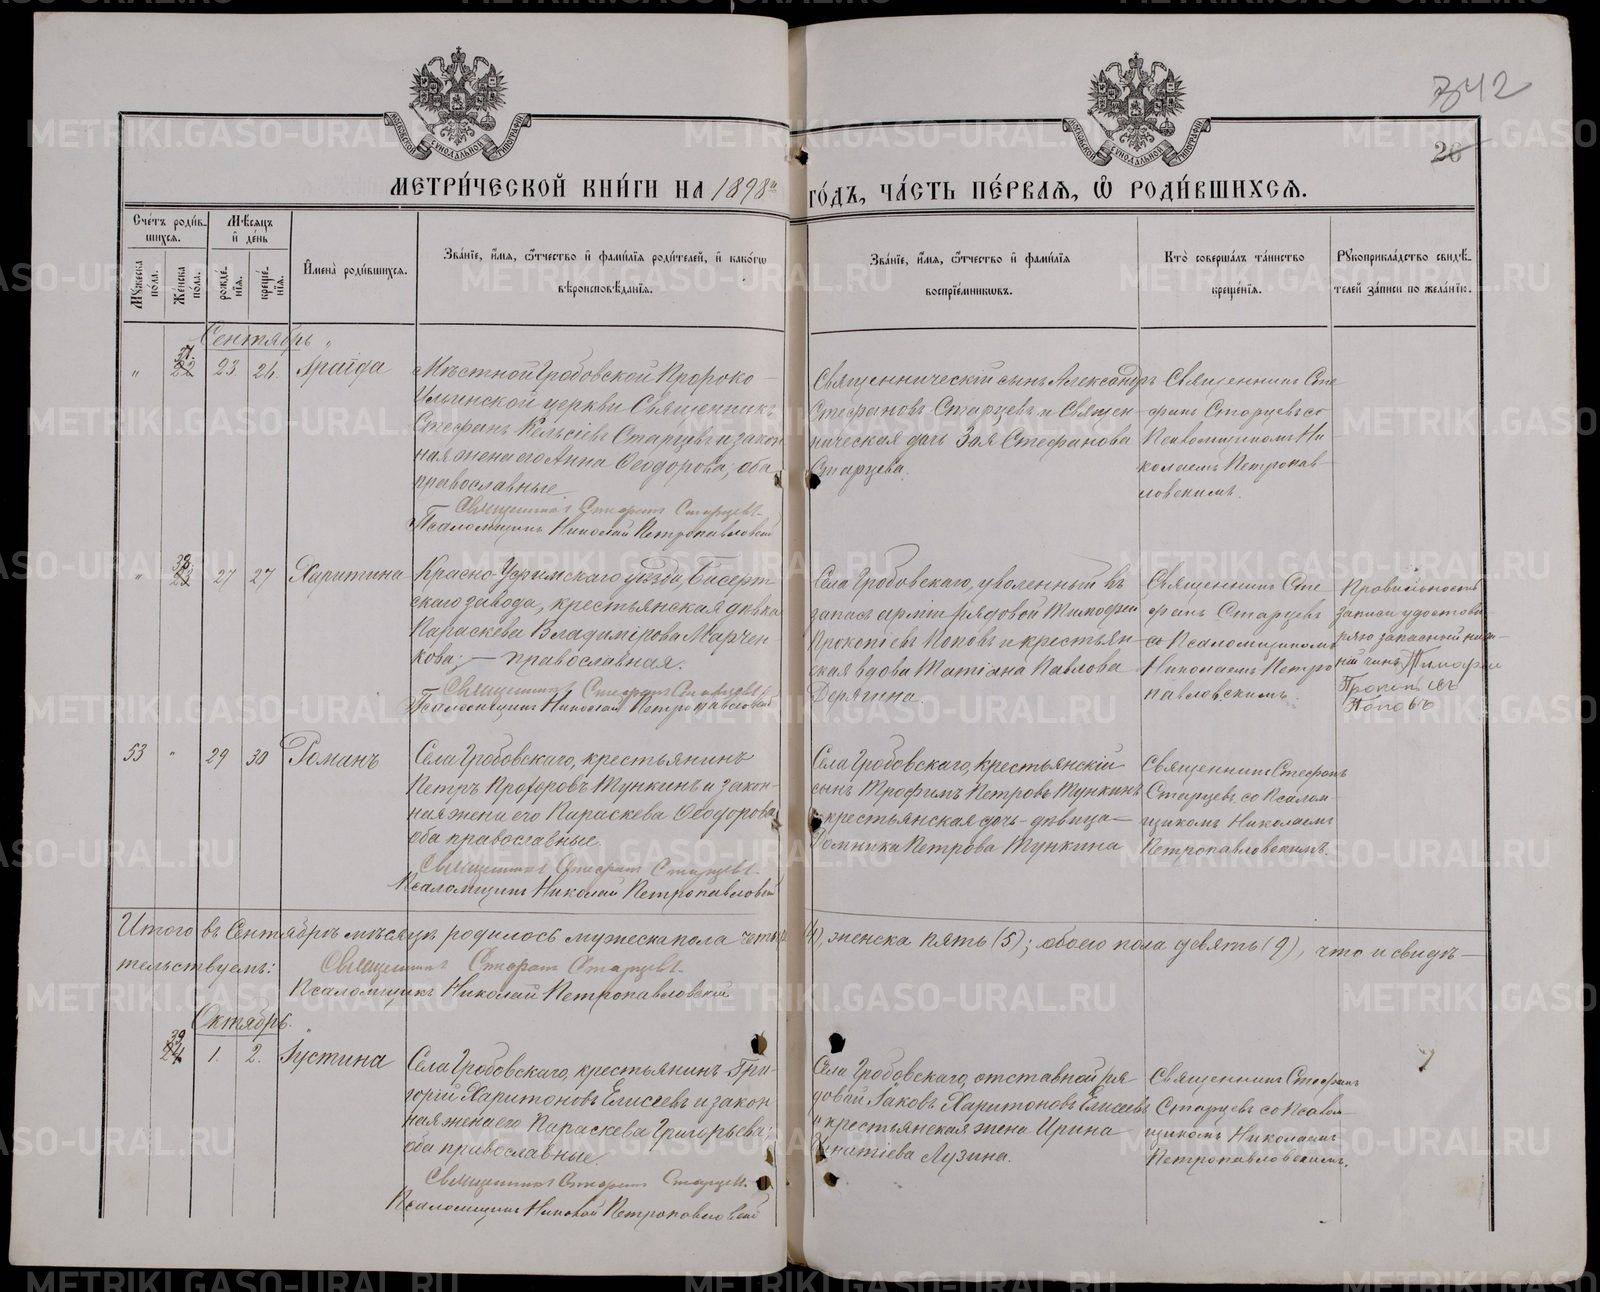 342
26
МЕТРИ́ЧЕСКОЙ КНИ́ГИ НА 1898й ГО́ДЪ, ЧА́СТЬ ПЕ́РВАЯ, Ѽ РОДИ́ВШИХСЯ.
Сче́тъ роди́вшихся.
Мꙋ́жеска по́ла.
Же́нска по́ла.
Мѣ́сяцъ и҆ де́нь
рожде́нїя.
креще́нїя.
И҆мена̀ роди́вшихся.
Зва́нїе, и҆́мя, ѻ҆́тчество и҆ фами́лїя роди́телей, и҆ како́гѡ
вѣроисповѣ́данїя.
Зва́нїе, и҆́мя, ѻ҆́тчество и҆ фами́лїя
воспрїе́мникѡвъ.
Кто̀ соверша́лъ та́инство
креще́нїя.
Рꙋкоприкла́дство свидѣ́-
телей за́писи по жела́нїю.
Сентябрь
"
37.
22
23.
26.
Ираида
Мѣстной Гробовской Пророко-
Ильинской церкви Священникъ
Стефанъ Кельсіевъ Старцевъ и закон
ная жена его Анна Ѳеодорова; оба
православные.
Священникъ Стефанъ Старцевъ.
Псаломщикъ Николай Петропавловскій
Священническій сынъ Александръ
Стефановъ Старцевъ и Священ-
ническая дочь Зоя Стефанова
Старцева.
Священникъ Сте
фанъ Старцевъ со
Псаломщикомъ Ни
колаемъ Петропав-
ловскимъ.
"
38
27
27
Харитина
Красно-Уфимскаго уѣзда, Бисерт-
скаго завода, крестьянская дѣвка
Параскева Владимірова Марчен-
кова; — православная.
Священникъ Стефанъ Старцевъ
Псаломщикъ Николай Петропавловскій
Села Гробовскаго, уволенный въ
запасъ арміи рядовой Тимофей
Прокопіевъ Поповъ и крестьян-
ская вдова Татіана Павлова
Дерягина.
Священникъ Сте
фанъ Старцевъ
со Псаломщикомъ
Николаемъ Петро
павловскимъ.
Правильность
записи удостовѣ
ряю запасный ниж-
ній чинъ Тимофей
Прокопьевъ
Поповъ
53
"
29
30
Романъ
Села Гробовскаго, крестьянинъ
Петръ Прохоровъ Тункинъ и закон-
ная жена его Параскева Ѳеодорова
оба православные.
Священникъ Стефанъ Старцевъ.
Псаломщикъ Николай Петропавловскій
Села Гробовскаго, крестьянскій
сынъ Трофимъ Петровъ Тункинъ
и крестьянская дочь - дѣвица —
Домника Петрова Тункина
Священникъ Стефанъ
Старцевъ со Псалом-
щикомъ Николаемъ
Петропавловскимъ.
Итого въ Сентябрѣ мѣсяцѣ родилось мужеска пола четыре (4), женска пять (5); обоего пола девять (9), что и свидѣ-
тельствуемъ: Священникъ Стефанъ Старцевъ.
Псаломщикъ Николай Петропавловскій
Октябрь.
39
24
1.
2.
Іустина
Села Гробовскаго, крестьянинъ Гри-
горій Харитоновъ Елисеевъ и закон
ная жена его Параскева Григорьева;
оба православные.
Священникъ Стефанъ Старцевъ.
Псаломщикъ Николай Петропавловскій
Села Гробовскаго, отставной ря
довой Іаковъ Харитоновъ Елисеевъ
и крестьянская жена Ирина
Игнатіева Лузина.
Священникъ Стефанъ
Старцевъ со Псалом-
щикомъ Николаемъ
Петропавловскимъ.
METRIKI.GASO-URAL.RU